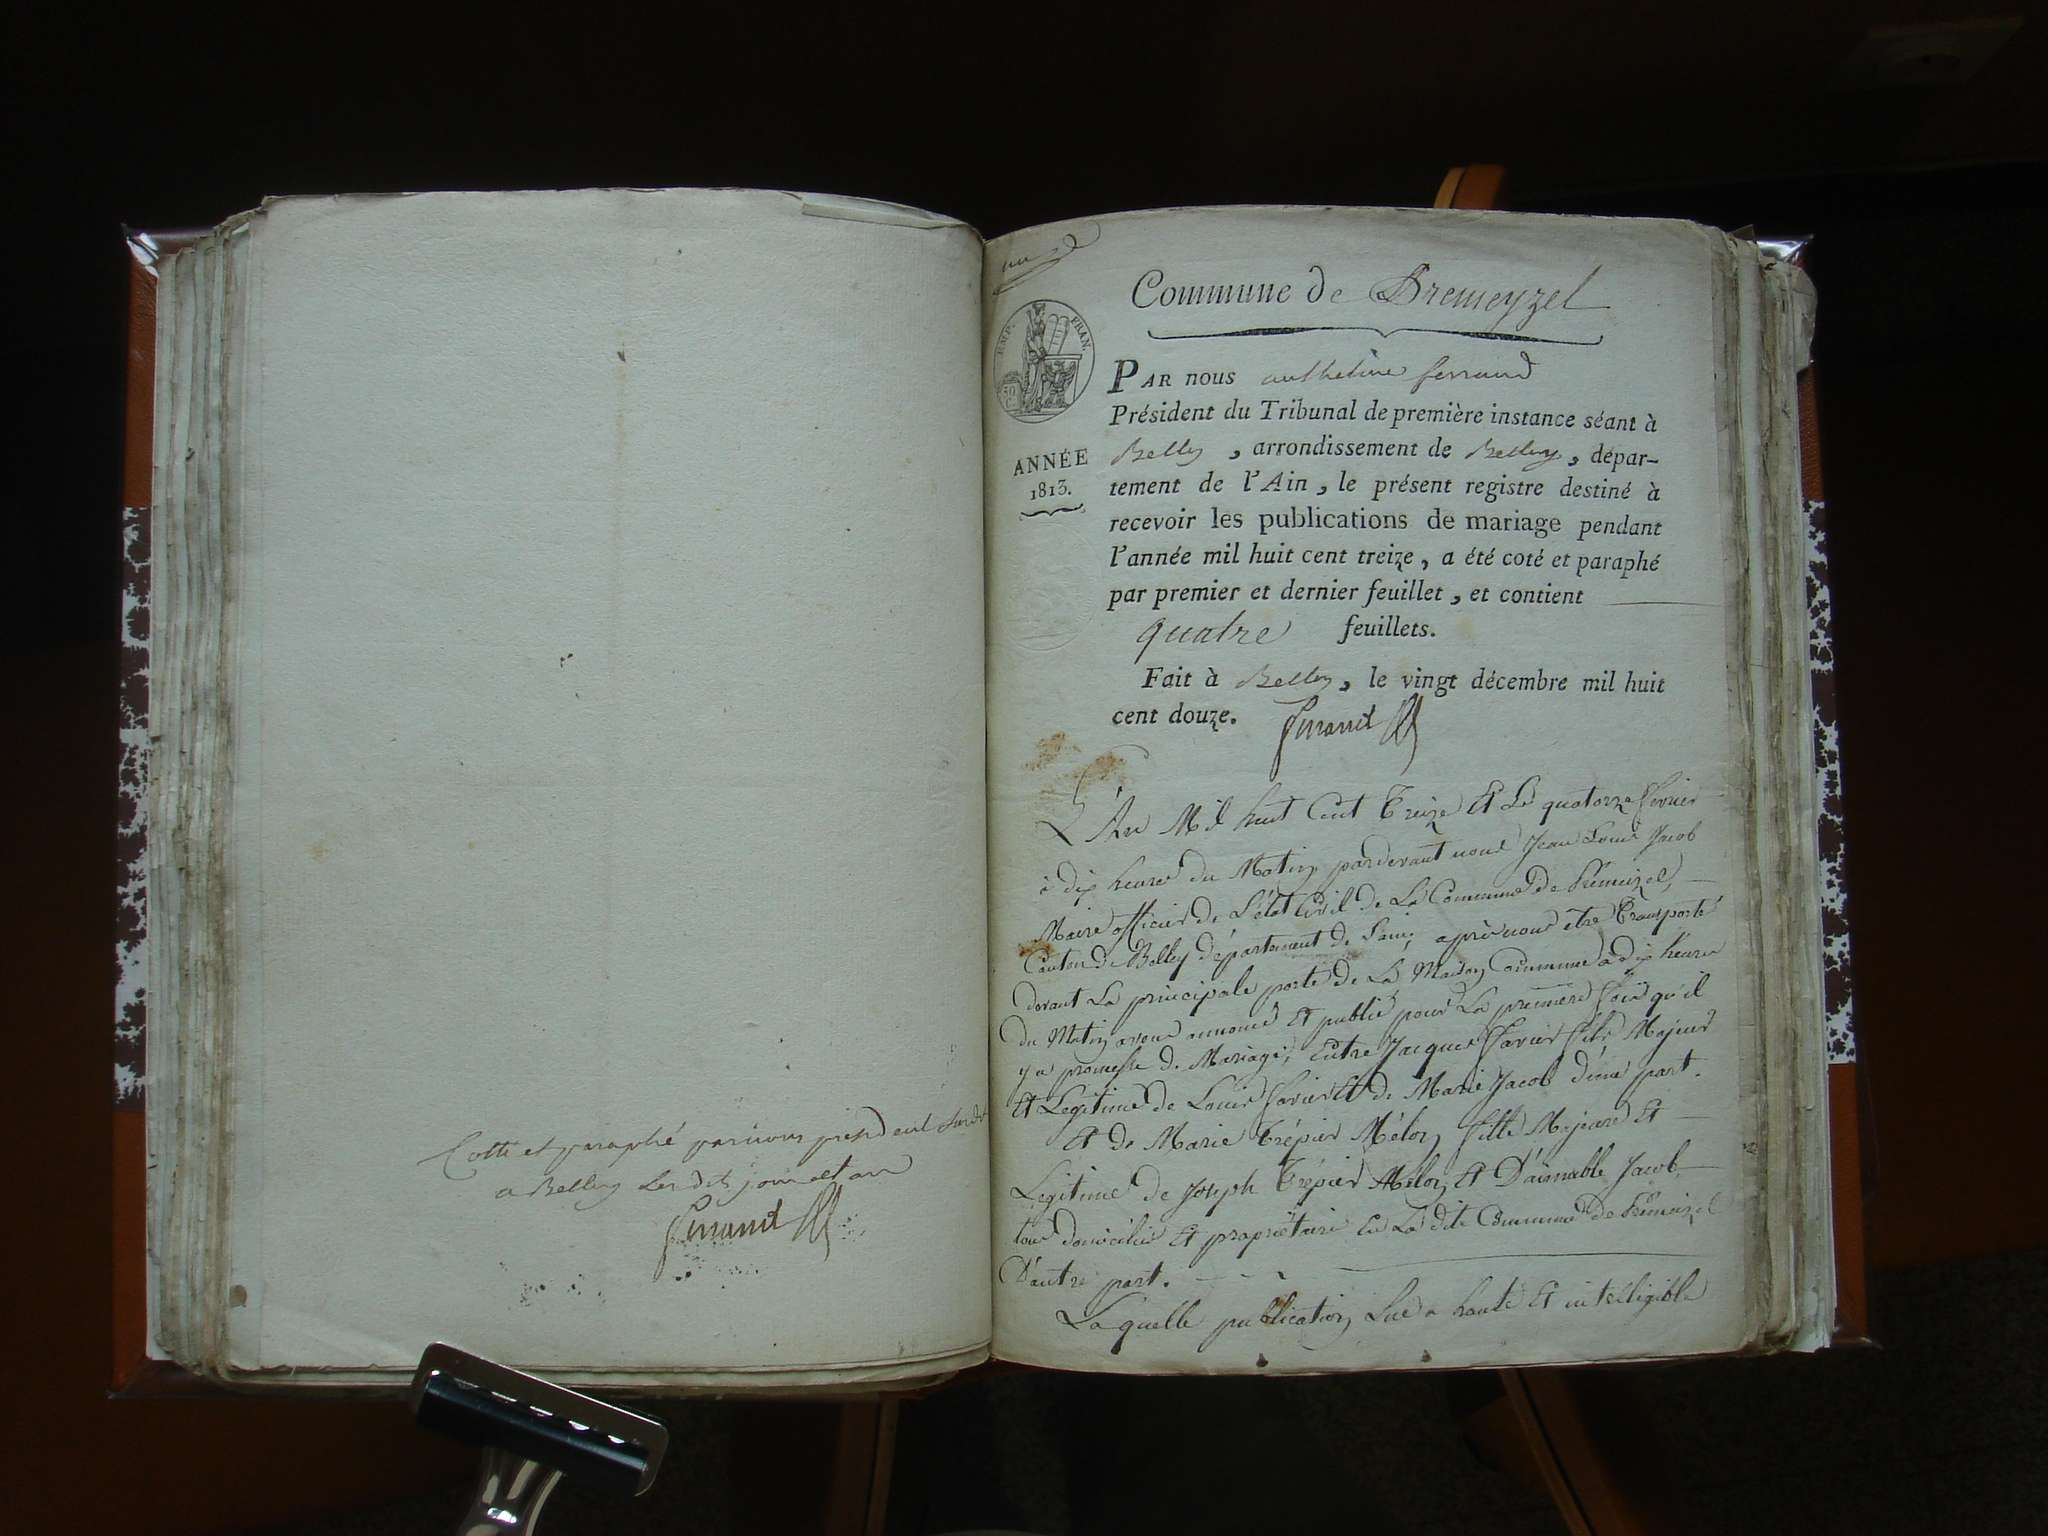 Cotté et paraphé par nous président susdit
a Belley les dits jour et an
Ferrand
un
Commune de Premeyzel
EMP. FRAN.
50
C.
ANNÉE
1813.
PAR nous anthelme ferrand
Président du Tribunal de première instance séant à
Belley , arrondissement de Belley , dépar-
tement de l'Ain , le présent registre destiné à
recevoir les publications de mariage pendant
l'année mil huit cent treize , a été coté et paraphé
par premier et dernier feuillet , et contient
quatre feuillets.
Fait à Belley , le vingt décembre mil huit
cent douze. Ferrand
L'An Mil huit Cent Treize Et Le quatorze fevrier
à dix heures du Matin pardevant nous Jean Louis Jacob
Maire officier de L'état Civil de La Commune de Prémeizel,
Canton de Belley département de Lain; après nous être Transporté
devant La principale porte de La Maison Commune a dix heures
du Matin avons annoncé Et publié pour La première fois qu'il
y a promesse de Mariage, Entre Jacques Savier fils Majeur
Et Légitime de Louis Savier Et de Marie Jacob d'une part.
Et de Marie Trépier Mélon fille Majeure Et
Légitime de Joseph Trépier Mélon Et D'aimable Jacob
tous domiciliés Et propriétaire En La dite Commune de Prémeizel
D'autre part.
La quelle publication Lue a haute Et intelligible